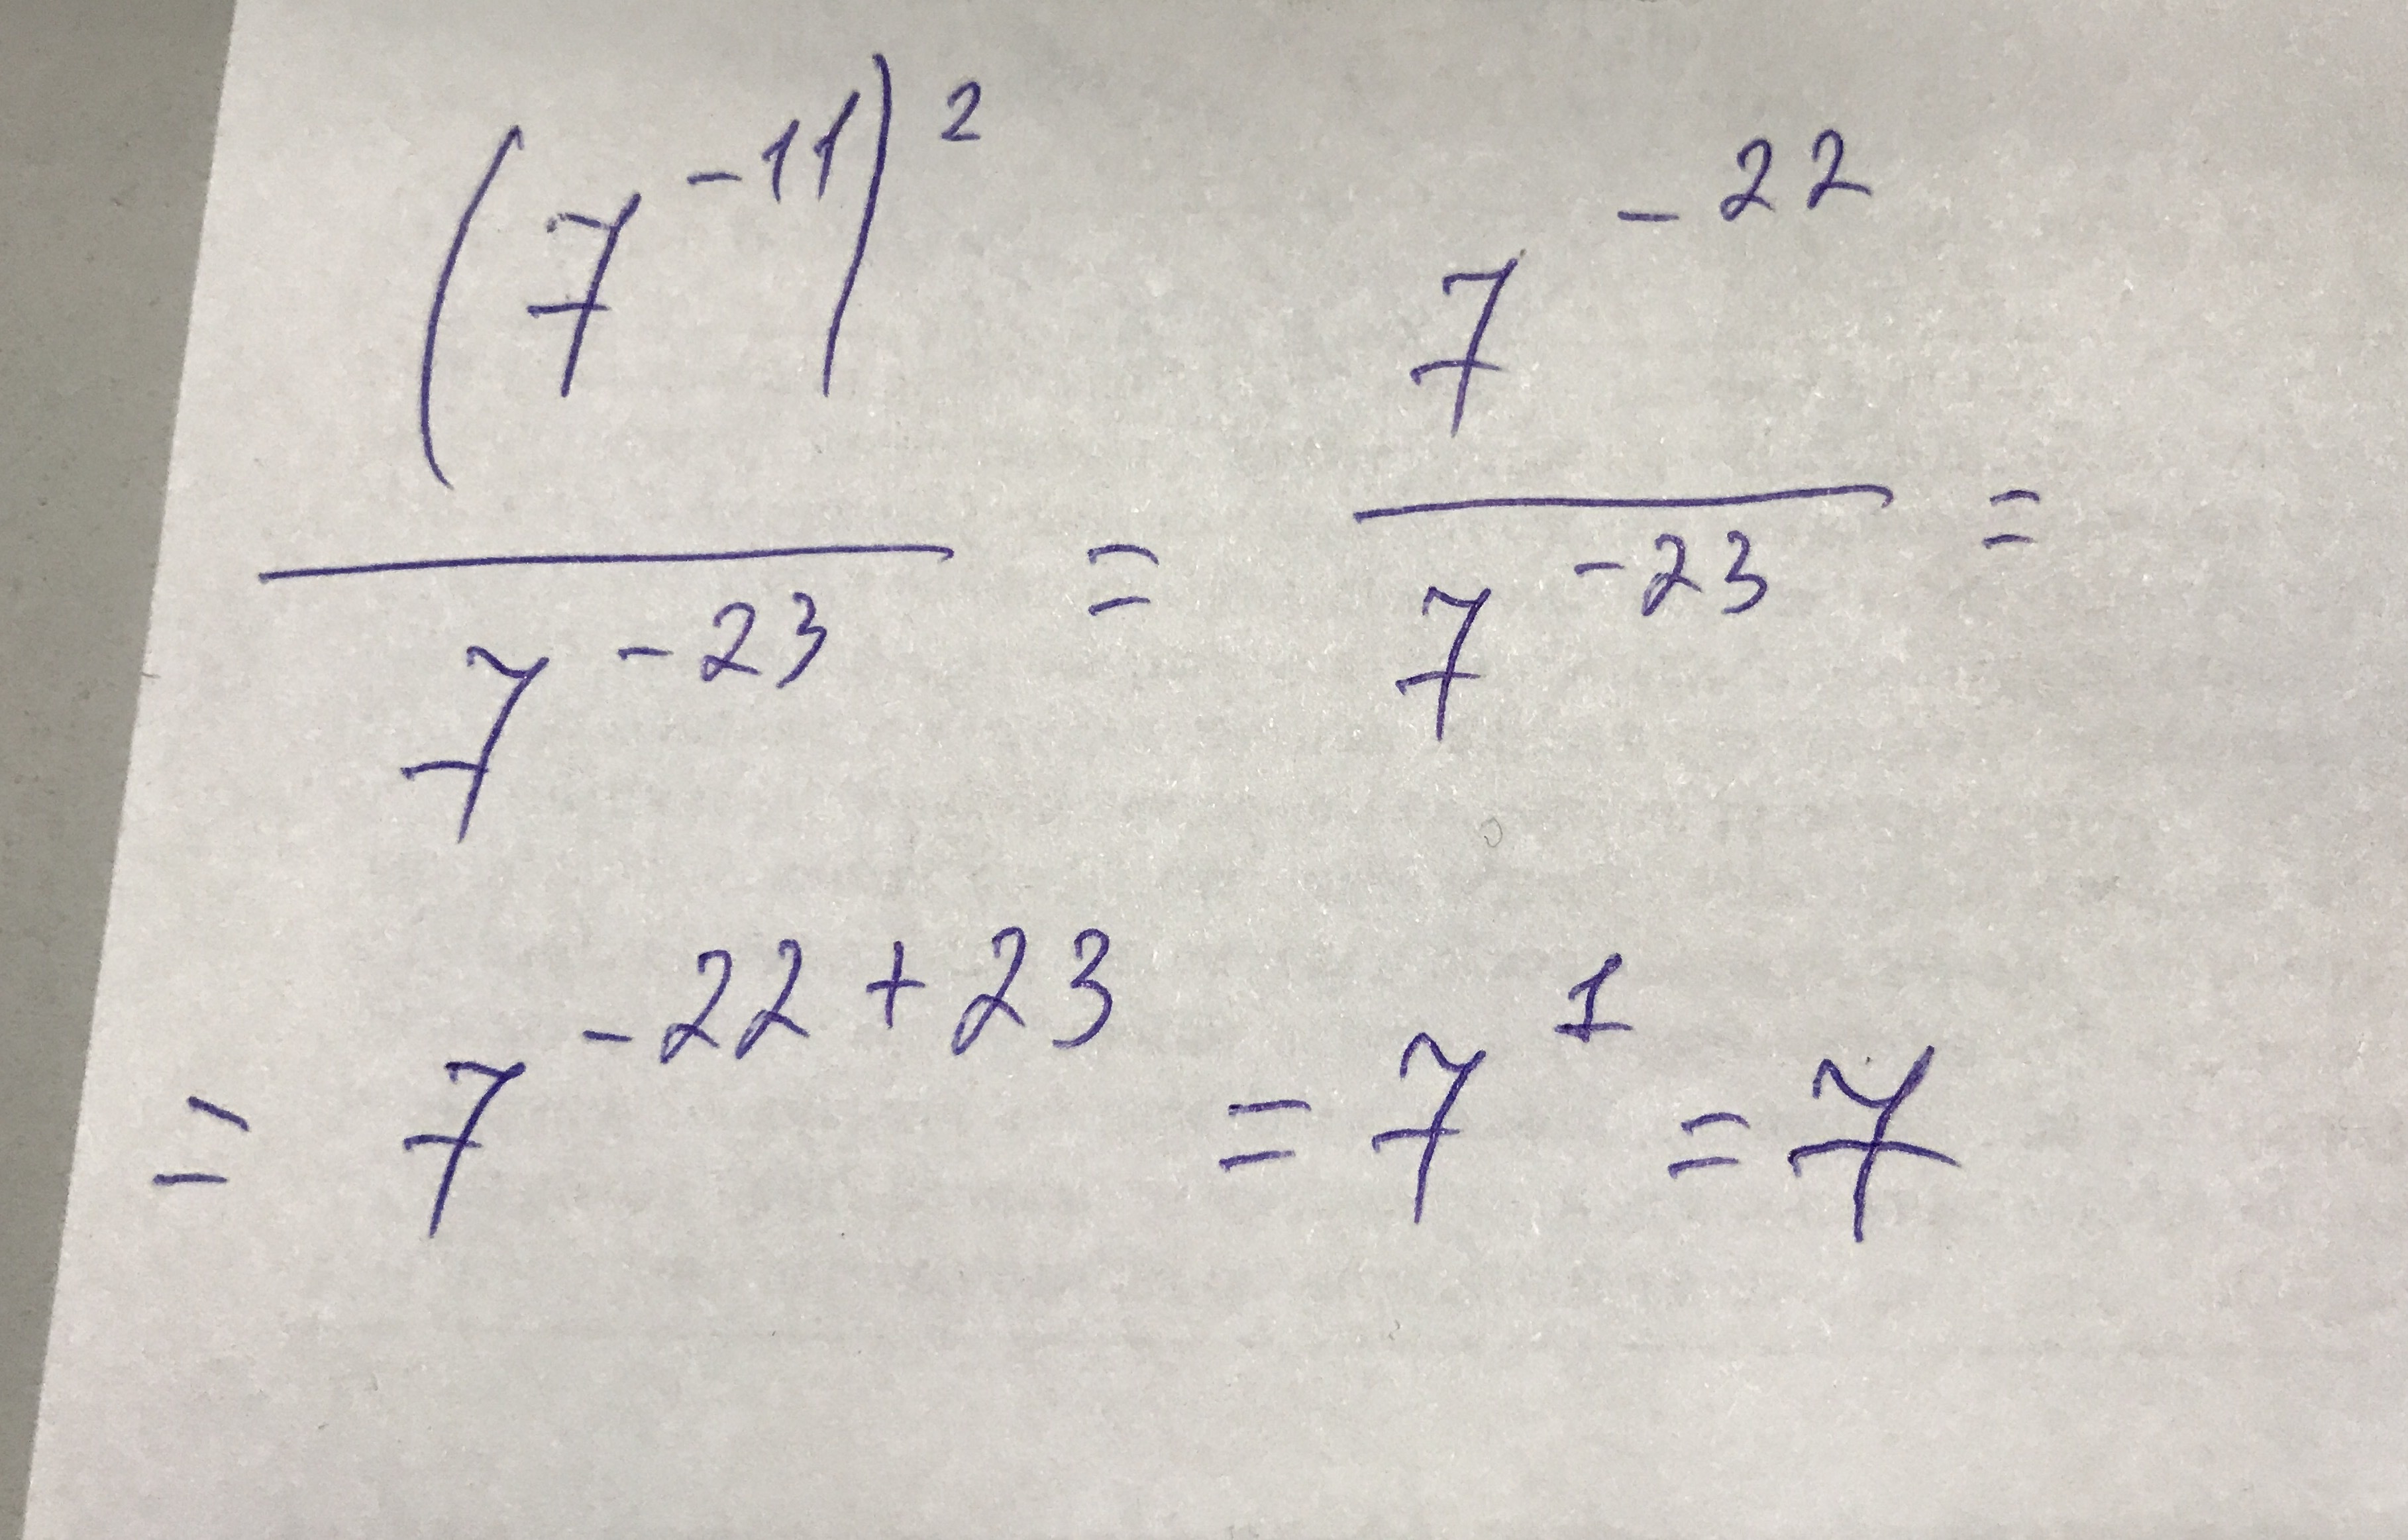 (7^-11)^2 / 7^-23 = 7^-22 / 7^-23 =
= 7^-22+23 = 7^1 = 7